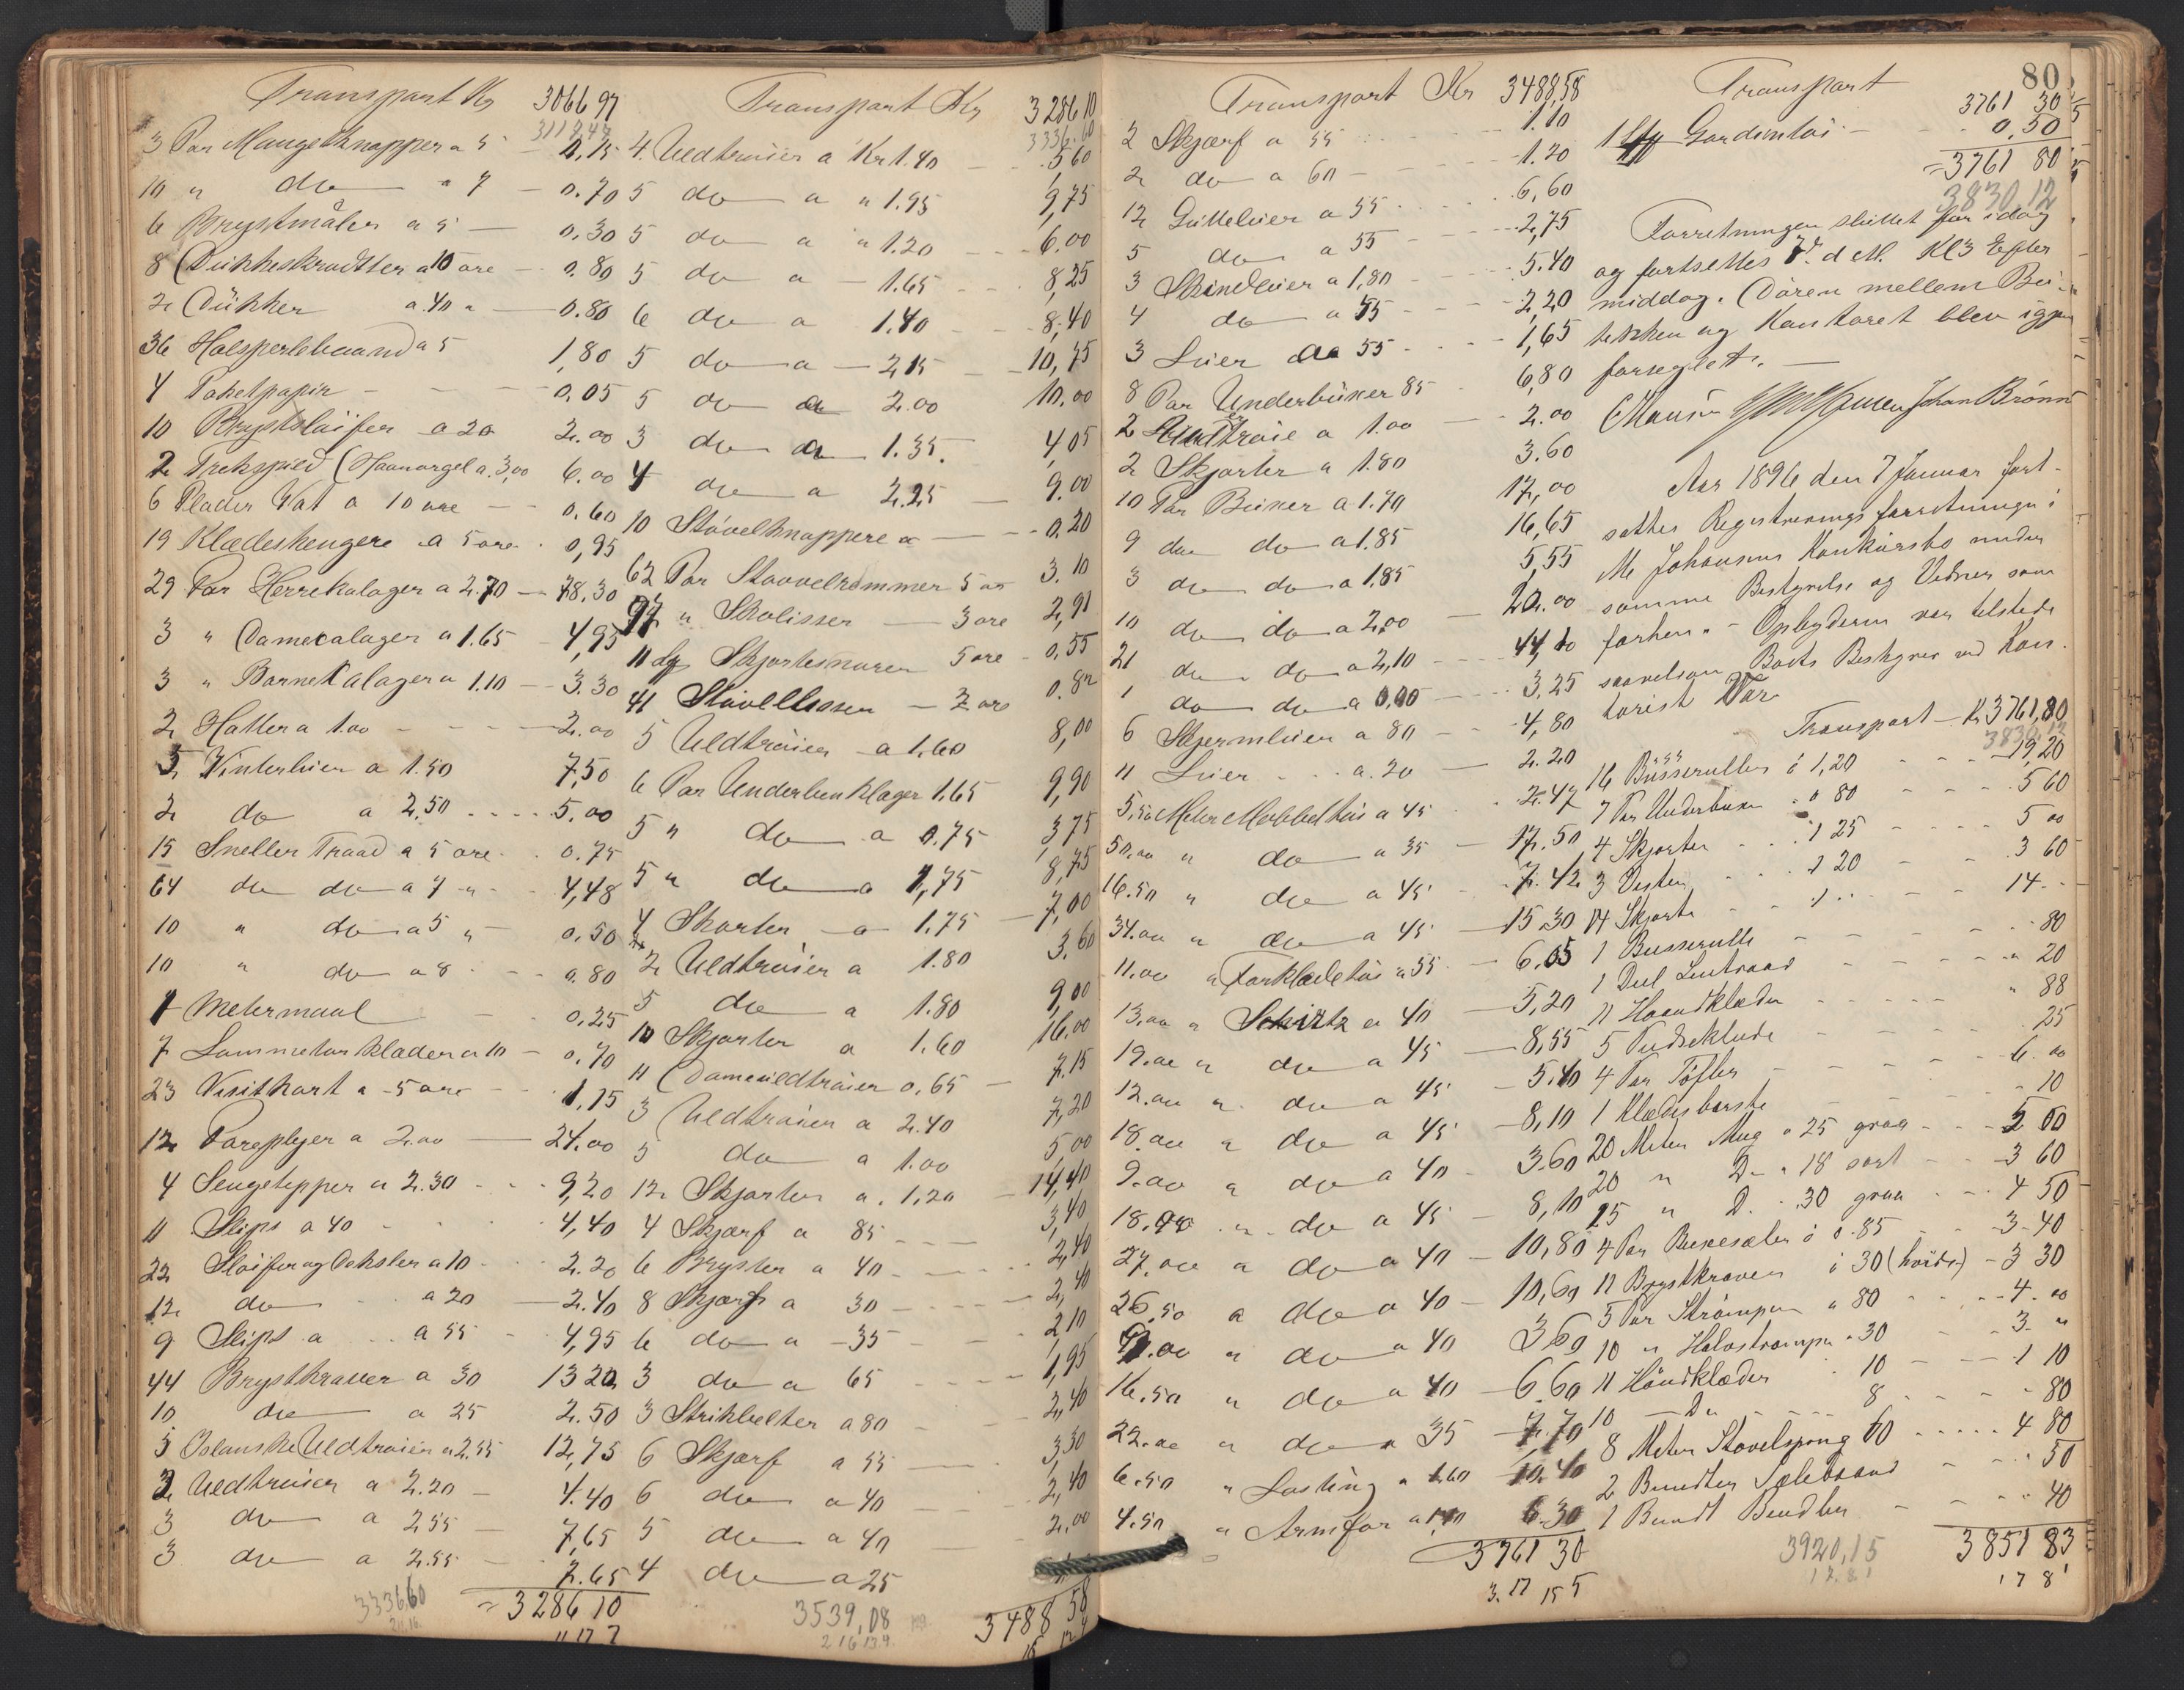 Transport Kr 3066 97
3117,47
3 Par Mangelknapper a 5 — 0,15
10 " do " 7 — 0.70
6 Brystmåler a 5 — 0.30
8 Dukkeskrodtter a 10 øre — 0.80
2 Dükker a 40 " — 0.80
36 Halsperlebaand a 5 1,80
1 Paketpapir — 0,05
10 Brystsløifer a 20 2.00
2 Trekspied (Haanorgel a 3,00 6.00
6 Plader Vat a 10 øre — 0.60
19 Klædeshengere a 5 øre . 0,95
29 Par Herrekalager a 2.70 — 78,30
3 " Damecalager a 1.65 — 4,95
3 " Barnekalager a 1.10 — 3.30
2 Hatter a 1.00 — 2.00
5 Vinterluer a 1.50 7,50
2 do a 2,50 .... 5.00
15 Sneller Traad a 5 øre . 0.75
64 do do a 7 " 4,48
10 " do a 5 " 0.50
10 " do a 8 0.80
1 Metermaal 0.25
7 Lommetørklæder a 10 — 0.70
23 Visitkort a 5 øre 1,15
12 Pareplyer a 2.00 — 24.00
4 Sengetepper a 2.30 9,20
11 Slips a 40 4,40
22 Sløifer og Dekster a 10 2.20
12 do a 20 2.40
9 Slips a a 55 4,95
44 Brystkraver a 30 13 20
10 do a 25 2.50
5 Islanske Uldtrøier a 2.55 12,75
2 Uldtrøier a 2.20 — 4.40
3 do a 2,55 7,65
3 do a 2.55 7.65
333660 = 3286 10
Transport Kr 3286 10
3336.60
4 Uldtrøier a Kr 1.40 — 5 60
5 do a " 1.95 9,75
5 do a " 1.20 — 6.00
5 do a — 1.65 8,25
6 do a 1.40 8,40
5 do a — 2,15 — 10,75
5 do a 2.00 10.00
3 do a 1.35. 4,05
4 do a 2.25 — 9.00
10 Støvelknappere a — 0.20
62 Par Støovelrømmer 5 øre 3.10
97 " Skolisser — 3 øre 2,91
11 Lg Skjortesnøren 5 øre 0,55
41 Støvellisser — 2 øre 0.82
5 Uldtrøier a 1.60 8,00
6 Par Underbenklæger 1,65 9,90
5 " do a 0.75 3,75
5 " do a 1,75 8,75
4 Skorter a 1.75 — 7,00
2 Uldtrøier a 1.80 3.60
5 do a 1.80 9,00
10 Skjorter a 1.60 16.00
11 Dameuldtrøier 0.65 — 7.15
3 Uldtrøier a 2.40 7,20
5 do a 1.00 5,00
12 Skjorter a 1,20 14,40
4 Skjærf a 85 3,40
6 Bryster a 40 2,40
8 Skjærf a 30 2,40
6 do a 35 2,10
3 do a 65 1,95
3 Strikbelter a 80 2,40
6 Skjærf a 55 3,30
6 do a 40 2,40
5 do a 40 2.00
4 do a 25
3539,08 3488 58
Transport Kr 3488,58
2 Skjærf a 55 1.10
2 do a 60 1.20
12 Guttelüer a 55 6,60
5 do a 55 2,75
3 Skindlüer a 1,80 5.40
4 do a 55 2,20
3 Luer a 55 1,65
8 Par Underbüxer 85 6,80
2 Uldtrøie a 1.00 — 2.00
2 Skjorter a 1.80 3.60
10 Par Buxer a 1.70 17,00
9 do do a 1.85 16,65
3 do do a 1.85 5,55
10 do do a 2,00 — 20.00
21 do do a 2,10 44,10
1 do do a 3,25
6 Skjermlüer a 80 4,80
11 Luer a 20 2.20
5,50 Meter Møbbeltøi a 45 2.47
50.00 " do a 35 17.50
16.50 " do a 45 7.42
34.00 " do a 45 15.30
11.00 " Forklædetøi a 55 6.05
13.00 " Schirtz a 40 5,20
19.00 " do a 45 8,55
12.00 " do a 45 5.40
18.00 " do a 45 8,10
9.00 " do a 40 3.60
18.00 " do a 45 8,10
27.00 " do a 40 10,80
26,50 " do a 40 10,60
9.00 " do a 40 3 60
16.50 " do a 40 6.60
22.00 " do a 35 7.70
6.50 " Lasting a 1.60 10.40
4.50 " Armfor a 1.40 6.30
3761 30
80
Transport
3761 30
1 Gardentøi — 0,50
= 3761 80
3830,12
Forretningen sluttet for idag
og fortsettes 7d. d M. Kl 3 Efter
middag. Døren mellem Bu-
tikken og Kontoret blev igjen
forseglet. —
CHansen Johan Brønn
Aar 1896 den 7 Januar fort-
sattes Registreringsforretningen i
M Johansens Konkursbo under
samme Bestyrelse og Vidner som
forhen. — Opbyderen var tilstede
saavelsom Boets Bestyrer ved Kon-
torist Var
Transport — Kr 3761,80
3830,12
16 Büsseruller à 1,20 19,20
7 Par Underbuxer " 80 5 60
4 Skjorter 1 25 5 00
3 Vester 1 20 3 60
14 Skjorte 1 .. 14 -
1 Busserulle 80
1 Deel Lintraad " 20
11 Haandklæder " 88
5 Pudseklude 25
4 Par Tøfler 6. 00
1 Klædesbørste 10
20 Meter Mug a 25 graa 5 00
20 " D. " 18 sort 3 60
15 " D. 30 graa 4 50
4 Par Buxesæler à 0.85 3 40
11 Brystkraver à 30 (hvide) 3 30
5 Par Strømper a 80 4. 00
10 " Halvstrømper " 30 3. "
11 Håndklæder 10 1 10
10 — Do 8 80
8 Meter Støvelspong 60 4 80
2 Bundter 50
1 Bundt Bendler 40
3920,15 3851 83